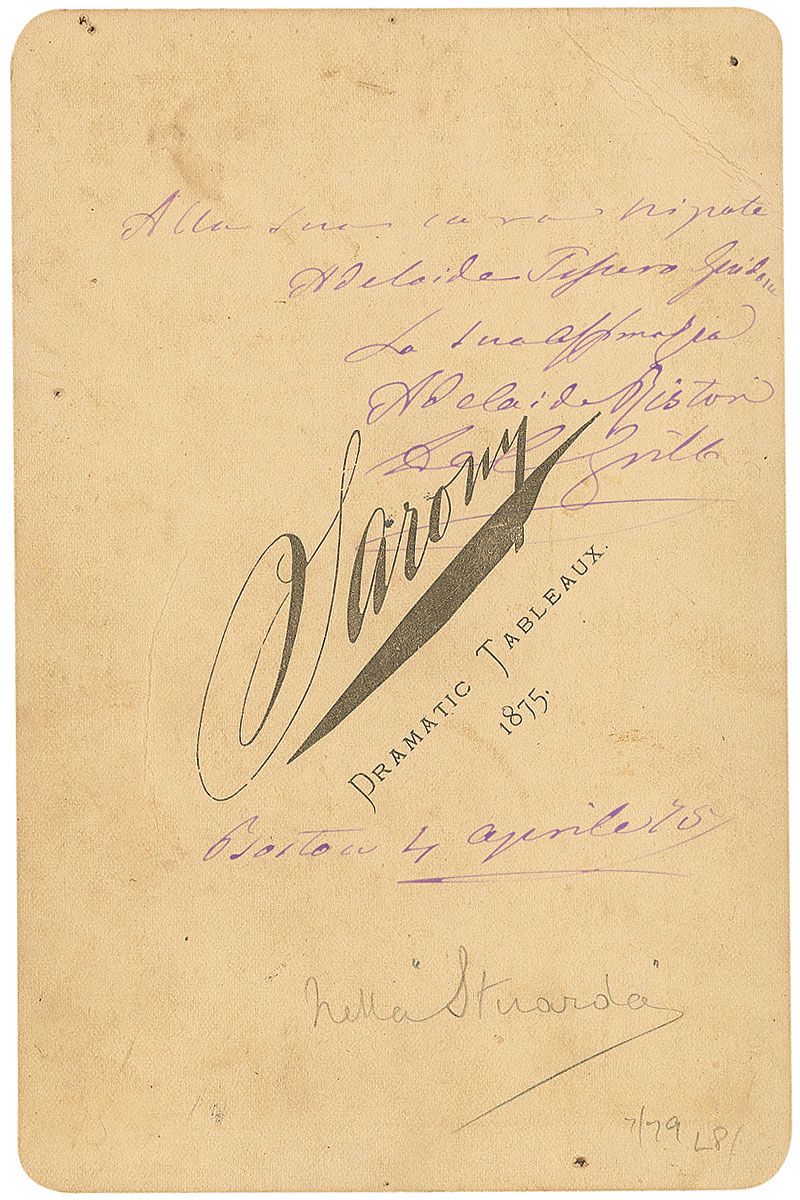 Alla sua cara nipote
Adelaide Tessero Guidone
La sua affma Zia
Adelaide Ristori
Del Grillo
Sarony
DRAMATIC TABLEAUX.
1875.
Boston 4 aprile 75
Nella "Stuarda"
7/79 L8/